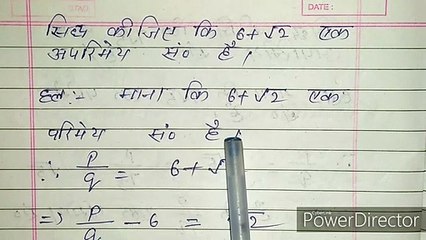 DATE:
सिद्ध कीजिए कि 6+√2 एक
अपरिमेय सं० है।
हल:- माना कि 6+√2 एक
परिमेय सं० है।
∴ p/q = 6+√
⇒ p/q - 6 = √2
PowerDirector